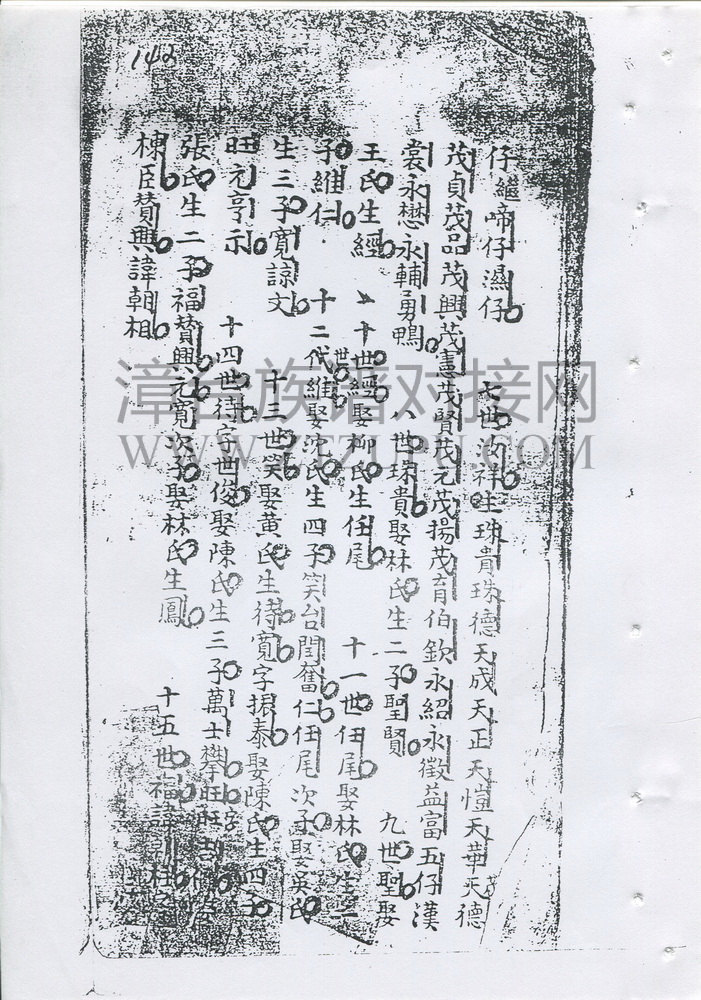 142
仔繼啼仔濕仔　七世汝祥生珠貴珠德天成天正天愷天華天德
茂貞茂品茂興茂憲茂賢茂元茂揚茂育伯欽永紹永徵益富五仔漢
裳永懋永輔勇鴨　八世珠貴娶林氏生二子聖賢　九世聖娶
王氏生經　十世經娶柳氏生任尾　十一世任尾娶林氏生二
子維仁　十二代維娶沈氏生四子笑台閏奮仁任尾次子娶吳氏
世
生三子寬諒文　十三世笑娶黃氏生待寬字振泰娶陳氏生四子
旺元亨示　十四世待字世俊娶陳氏生三子萬士攀旺旺字
張氏生二子福贊興元寬次子娶林氏生鳳　十五世福諱朝柱
棟臣贊興諱朝相
漳台族谱对接网
WWW.ZTZUPU.COM